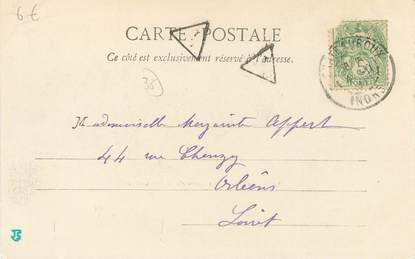 6 €
CARTE POSTALE
Ce côté est exclusivement réservé à l'adresse.
CHATEAUROUX
INDRE
5
Mademoiselle Marguerite Appert
44 rue Chanzy
Orléans
Loiret